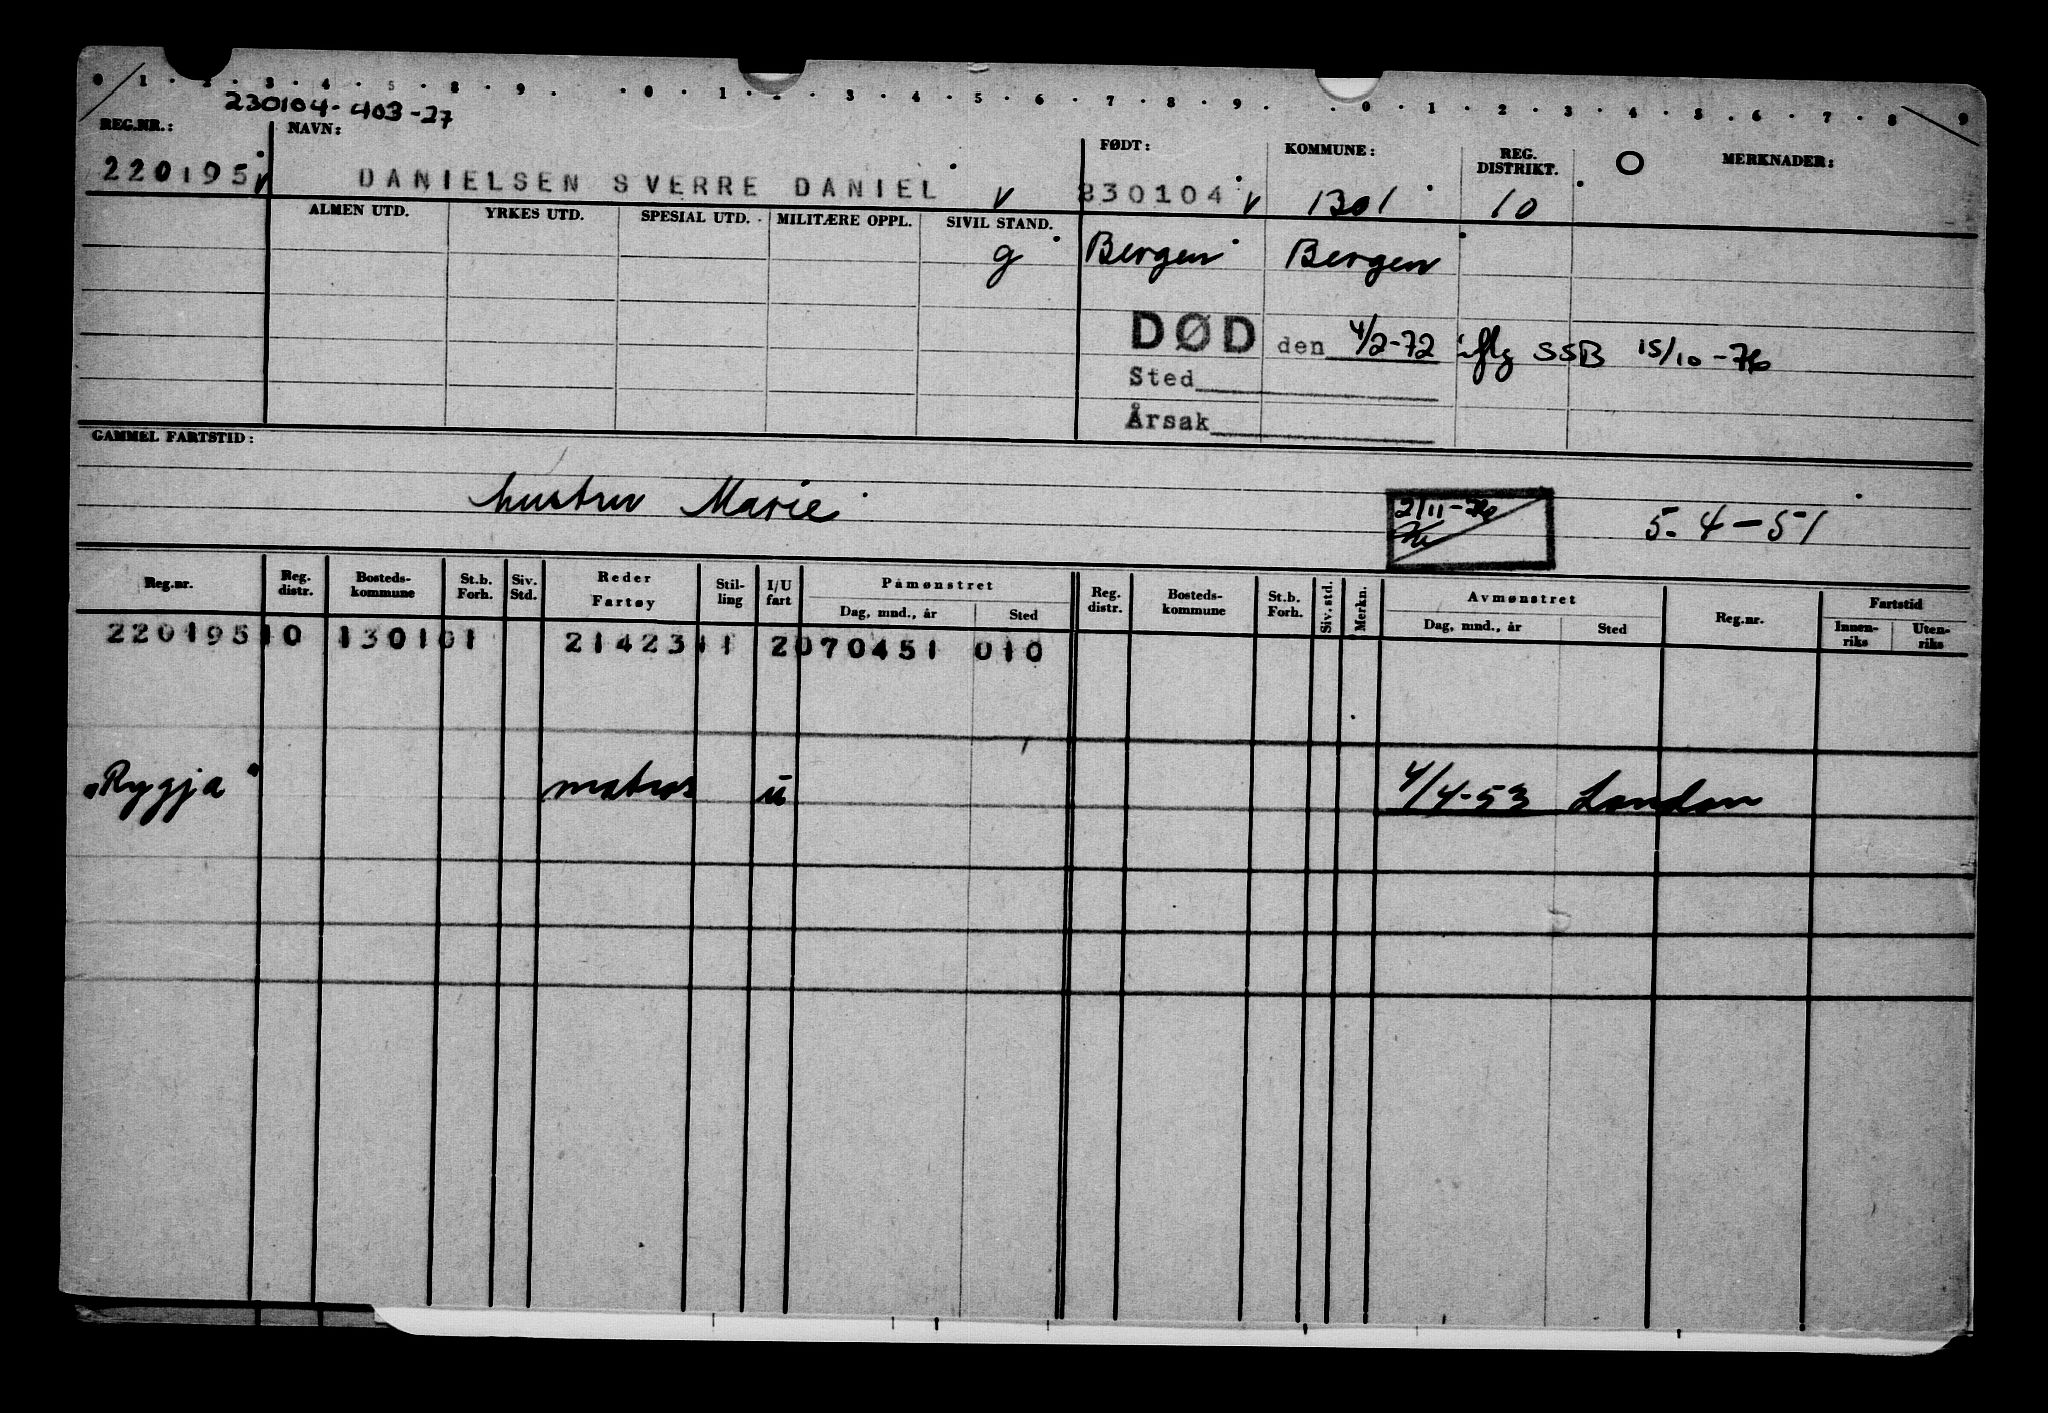 0 1 . 2 . 3 . 4 . 5 . 8 . 9 . . 0 . 1 . 2 . 3 . 4 . 5 . 6 . 7 . 8 . 9 . . 0 . 1 . 2 . 3 . 4 . 5 . 6 . 7 . 8 9
230104-403-27
REG.NR.: NAVN: FØDT: KOMMUNE: REG. DISTRIKT. O MERKNADER:
220195 v DANIELSEN SVERRE DANIEL v 230104 v 1301 10
ALMEN UTD. YRKES UTD. SPESIAL UTD. MILITÆRE OPPL. SIVIL STAND.
g Bergen Bergen
DØD den 4/2-72 iflg SSB 15/10-76
Sted
Årsak
GAMMEL FARTSTID:
hustru Marie
2/11-76
5.4-51
Reg.nr. Reg. distr. Bosteds- kommune St.b. Forh. Siv. Std. Reder Fartøy Stil- ling I/U fart Påmønstret Dag, mnd., år Sted Reg. distr. Bosteds- kommune St.b. Forh. Siv. std. Merkn. Avmønstret Dag, mnd., år Sted Reg.nr. Fartstid Innen- riks Uten- riks
220195 10 1301 01 21423 11 2 070451 010
"Rygja" matros u 4/4-53 London